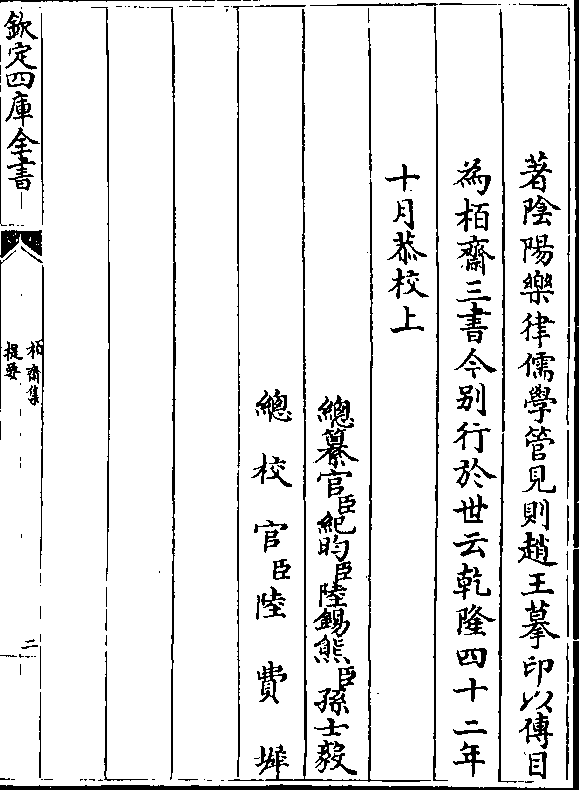 著陰陽樂律儒學管見則趙王摹印以傳目
為栢齋三書今别行於世云乾隆四十二年
十月恭校上
總纂官臣紀昀臣陸錫熊臣孫士毅
總校官臣陸費墀
欽定四庫全書
栢齋集
提要
二